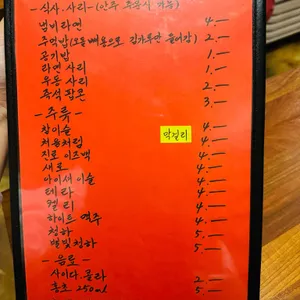 - 식사. 사리 - (안주 주문시 가능)
냄비라면 4.—
주먹밥(오동배움으로 김가루만 들어감) 2.—
공기밥 1.—
라면 사리 1.—
우동 사리 2.—
즉석 팝콘 3.—
- 주류 -
참이슬 4.—
처음처럼 4.—
막걸리
진로 이즈백 4.—
새로 4.—
아이셔 이슬 4.—
테라 4.—
켈리 4.—
하이트 맥주 4.—
청하 5.—
별빛청하 5.—
- 음료 -
사이다. 콜라 2—
홍초 250ml 5—